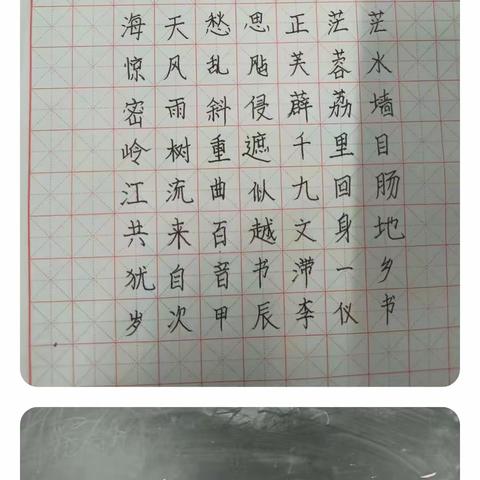 海天愁思正茫茫
惊风乱飐芙蓉水
密雨斜侵薜荔墙
岭树重遮千里目
江流曲似九回肠
共来百越文身地
犹自音书滞一乡
岁次甲辰李仪书